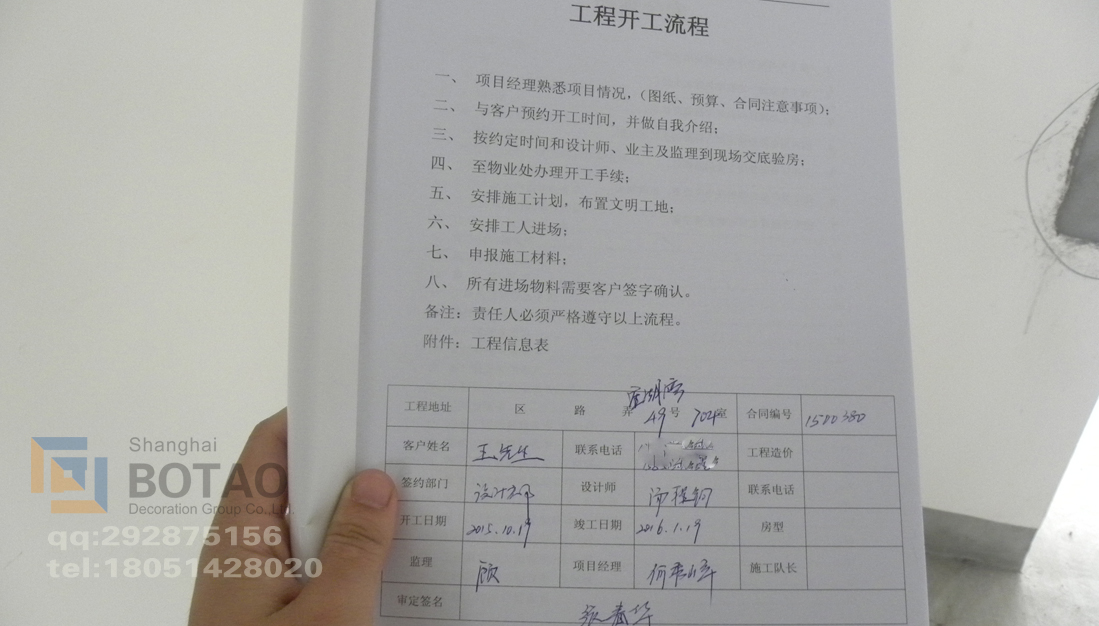 工程开工流程
一、 项目经理熟悉项目情况,(图纸、预算、合同注意事项);
二、 与客户预约开工时间,并做自我介绍;
三、 按约定时间和设计师、业主及监理到现场交底验房;
四、 至物业处办理开工手续;
五、 安排施工计划,布置文明工地;
六、 安排工人进场;
七、 申报施工材料;
八、 所有进场物料需要客户签字确认。
备注:责任人必须严格遵守以上流程。
附件:工程信息表
工程地址 区 路 弄 49号 704室 合同编号 1500380
客户姓名 王先生 联系电话 工程造价
签约部门 设计部 设计师 联系电话
开工日期 2015.10.19 竣工日期 2016.1.19 房型
监理 顾 项目经理 施工队长
审定签名 张春华
Shanghai
BOTAO
Decoration Group Co.,Ltd
qq:292875156
tel:18051428020